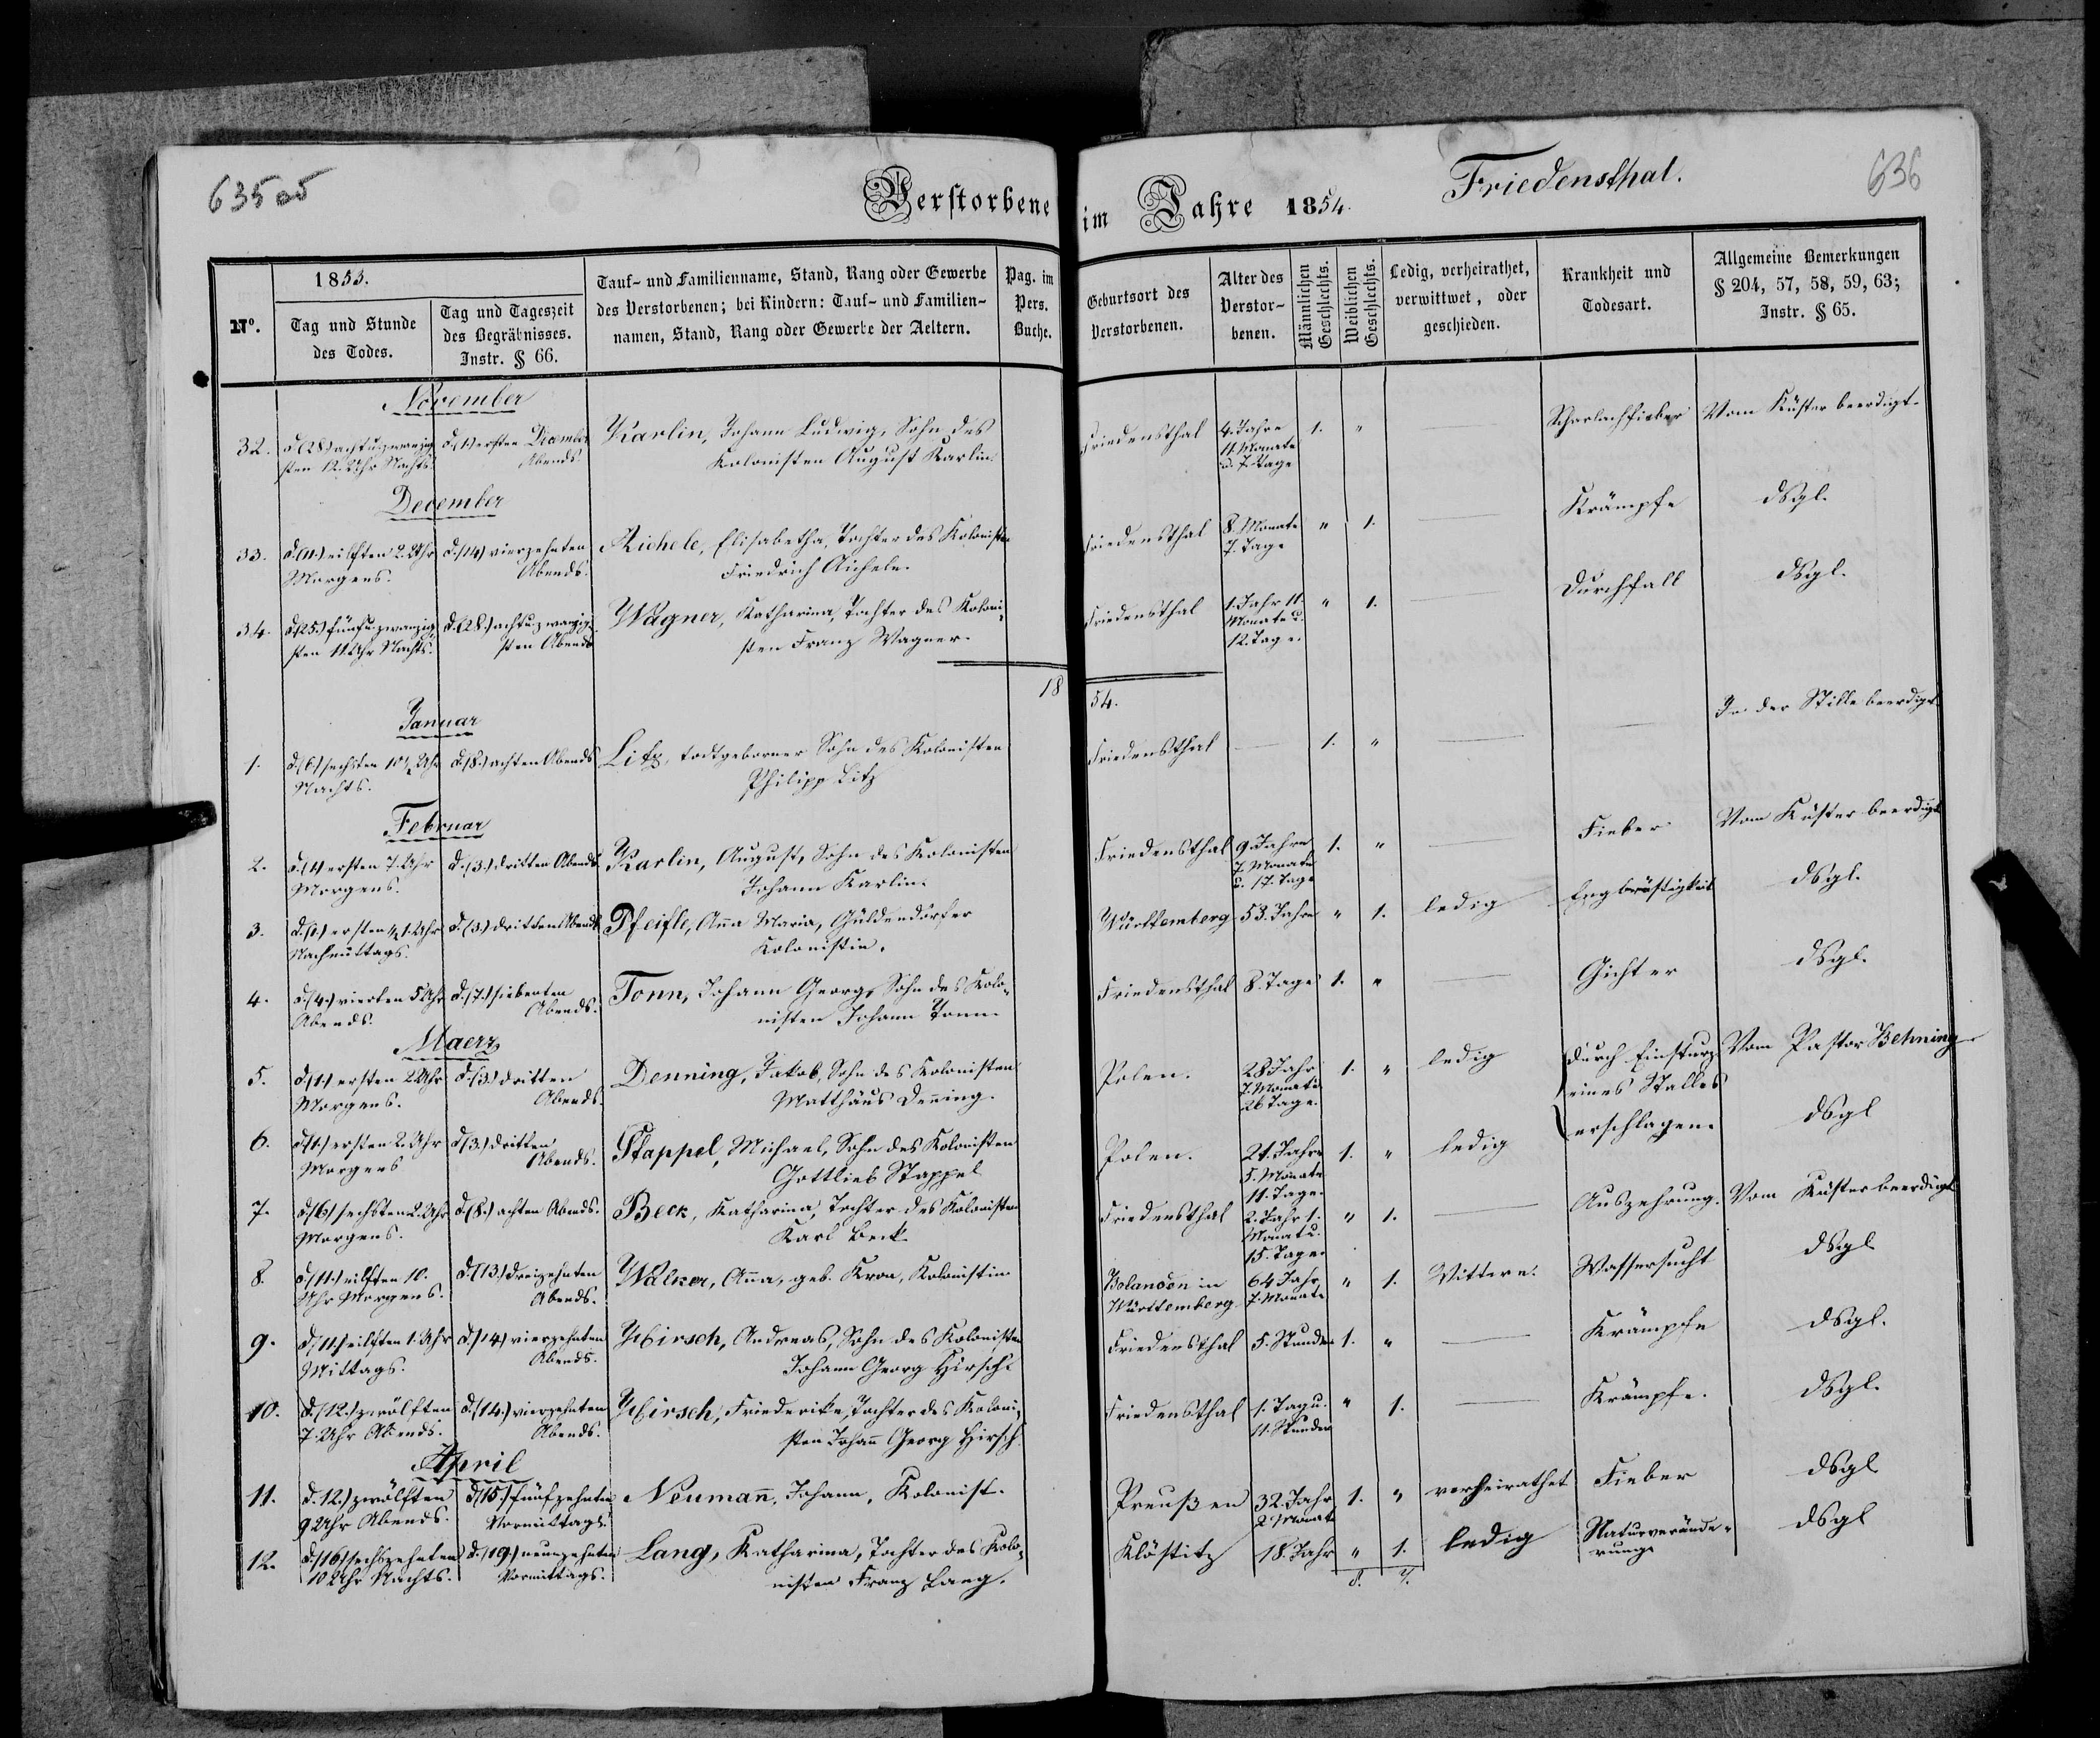 635 об
Verstorbene
im Jahre 1854.
Friedensthal.
636
Nº.
1853.
Tag und Stunde
des Todes.
Tag und Tageszeit
des Begräbnisses.
Instr. § 66.
Tauf- und Familienname, Stand, Rang oder Gewerbe
des Verstorbenen; bei Kindern: Tauf- und Familien-
namen, Stand, Rang oder Gewerbe der Aeltern.
Pag. im
Pers.
Buche.
Geburtsort des
Verstorbenen.
Alter des
Verstor-
benen.
Männlichen
Geschlechts.
Weiblichen
Geschlechts.
Ledig, verheirathet,
verwittwet, oder
geschieden.
Krankheit und
Todesart.
Allgemeine Bemerkungen
§ 204, 57, 58, 59, 63;
Instr. § 65.
November
32. d. (28) achtundzwanzig- d. (1) ersten December Karlin, Johann Ludwig, Sohn des Friedensthal 4. Jahre 1. " Scharlachfieber Vom Küster beerdigt.
sten 12. Uhr Nachts. Abends. Kolonisten August Karlin. 11. Monate
u. 7. Tage
December
33. d. (11.) eilften 2. Uhr d. (14) vierzehnten Aichele, Elisabetha, Tochter des Kolonisten Friedensthal 8. Monate " 1. Krämpfe dsgl.
Morgens. Abends. Friedrich Aichele. 7. Tage
34. d. (25.) fünfundzwanzig- d. (28.) achtundzwanzig- Wagner, Katharina, Tochter des Koloni- Friedensthal 1. Jahr 11. " 1. Durchfall dsgl.
sten 11 Uhr Nachts. sten Abends sten Franz Wagner. Monate u.
12. Tage.
1854.
Januar
1. d. (6.) sechsten 10½ Uhr d. (8.) achten Abends Litz, todtgeborner Sohn des Kolonisten Friedensthal 1. " In der Stille beerdigt.
Nachts. Philipp Litz
Februar
2. d. (1) ersten 7. Uhr d. (3.) dritten Abends Karlin, August, Sohn des Kolonisten Friedensthal 9. Jahre 1. " Fieber Vom Küster beerdigt
Morgens. Johann Karlin. 7. Monate
u. 17. Tage
3. d. (1.) ersten ½ 1. Uhr d. (3.) dritten Abends Pfeifle, Anna Maria, Güldendorfer Württemberg 53. Jahre " 1. ledig Engbrüstigkeit dsgl.
Nachmittags. Kolonistin.
4. d. (4.) vierten 5 Uhr d. (7.) siebenten Tonn, Johann Georg, Sohn des Kolo- Friedensthal 8. Tage 1. " Gichter dsgl.
Abends. Abends. nisten Johann Tonn.
Maerz
5. d. (1.) ersten 2 Uhr d. (3.) dritten Denning, Jakob, Sohn des Kolonisten Polen. 28 Jahr 1. " ledig durch Einsturz Vom Pastor Behning
Morgens. Abends. Matthäus Dening. 7. Monate eines Stalles
26 Tage.
6. d. (1.) ersten 2. Uhr d. (3.) dritten Stappel, Michael, Sohn des Kolonisten Polen. 21. Jahre 1. " ledig erschlagen. dsgl
Morgens Abends. Gottlieb Stappel 5. Monate
11. Tage.
7. d. (6.) sechsten 2. Uhr d. (8.) achten Abends. Beck, Katharina, Tochter des Kolonisten Friedensthal 2. Jahr 1. " 1. Auszehrung. Vom Küster beerdigt
Morgens. Karl Beck. Monat u.
15. Tage.
8. d. (11.) eilften 10. d. (13.) dreizehnten Walker, Anna, geb. Kron, Kolonistin Bolanden in 64 Jahr " 1. Wittwe. Wassersucht dsgl
Uhr Morgens. Abends. Württemberg. 7. Monate
9. d. (11.) eilften 1. Uhr d. (14) vierzehnten Hirsch, Andreas, Sohn des Kolonisten Friedensthal 5. Stunden 1. " Krämpfe dsgl.
Mittags. Abends. Johann Georg Hirsch.
10. d. (12.) zwölften d. (14.) vierzehnten Hirsch, Friederike, Tochter des Koloni- Friedensthal 1. Tag u. " 1. Krämpfe. dsgl.
7. Uhr Abends. Abends. sten Johann Georg Hirsch. 11. Stunden
April
11. d. 12.) zwölften d. (15.) fünfzehnten Neumann, Johann, Kolonist. Preußen 32. Jahr 1. " verheirathet Fieber dsgl
9 Uhr Abends. Vormittags. 2 Monat
12. d. (16.) sechszehnten d. (19.) neunzehnten Lang, Katharina, Tochter des Kolo- Klöstitz 18. Jahr " 1. ledig Naturverände- dsgl
10 Uhr Nachts. Vormittags. nisten Franz Lang. rung.
8. 7.